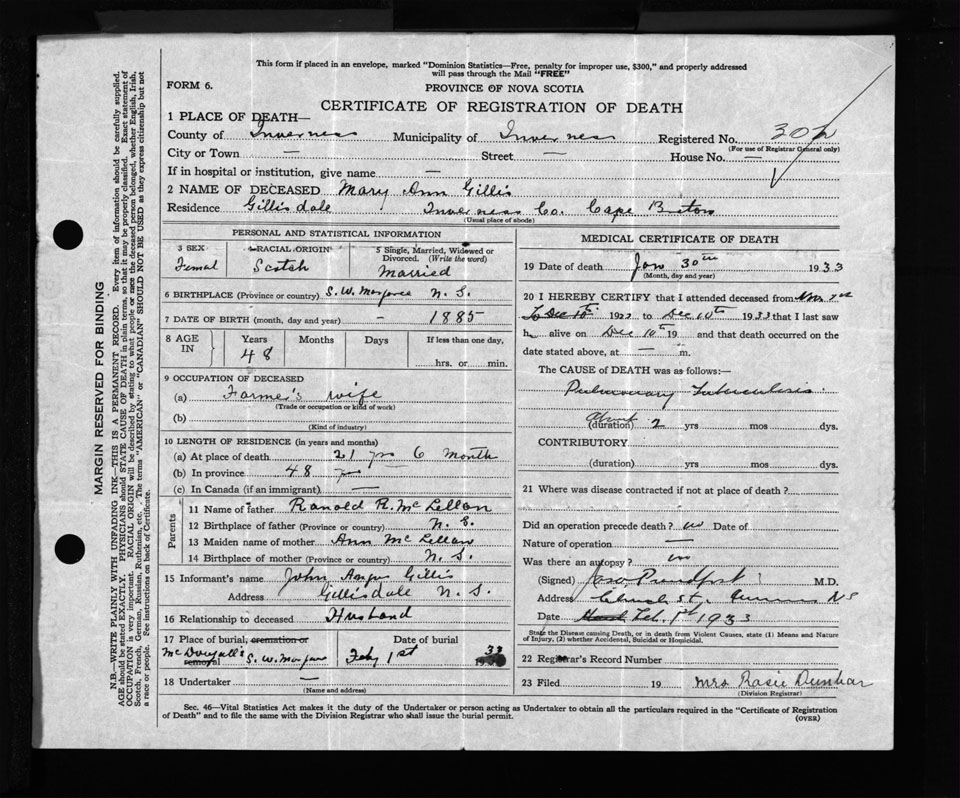 This form if placed in an envelope, marked "Dominion Statistics—Free, penalty for improper use, $300," and properly addressed
will pass through the Mail "FREE"
FORM 6.
PROVINCE OF NOVA SCOTIA
CERTIFICATE OF REGISTRATION OF DEATH
1 PLACE OF DEATH—
County of Inverness Municipality of Inverness Registered No. 302
(For use of Registrar General only)
City or Town — Street — House No. —
If in hospital or institution, give name —
2 NAME OF DECEASED Mary Ann Gillis
Residence Gillisdale Inverness Co. Cape Breton
(Usual place of abode)
PERSONAL AND STATISTICAL INFORMATION
3 SEX 4 RACIAL ORIGIN 5 Single, Married, Widowed or
Divorced. (Write the word)
Femal Scotch Married
6 BIRTHPLACE (Province or country) S. W. Margaree N. S.
7 DATE OF BIRTH (month, day and year) — 1885
8 AGE IN Years Months Days If less than one day,
48 hrs. or min.
9 OCCUPATION OF DECEASED
(a) Farmer's wife
(Trade or occupation or kind of work)
(b)
(Kind of industry)
10 LENGTH OF RESIDENCE (in years and months)
(a) At place of death 21 yrs 6 Month
(b) In province 48 yrs —
(c) In Canada (if an immigrant) —
Parents
11 Name of father Ranald R. McLellan
12 Birthplace of father (Province or country) N. S.
13 Maiden name of mother Ann McLellan
14 Birthplace of mother (Province or country) N. S.
15 Informant's name John Angus Gillis
Address Gillisdale N. S.
16 Relationship to deceased Husband
17 Place of burial, cremation or removal Date of burial
McDougall's S. W. Margaree Feby 1st 1933
18 Undertaker —
(Name and address)
MEDICAL CERTIFICATE OF DEATH
19 Date of death Jan 30th 1933
(Month, day and year)
20 I HEREBY CERTIFY that I attended deceased from
to Dec 10th 1933 that I last saw
h alive on Dec 10th 19 and that death occurred on the
date stated above, at — m.
The CAUSE OF DEATH was as follows:—
Pulmonary Tuberculosis
About
(duration) 2 yrs mos dys.
CONTRIBUTORY
(duration) yrs mos dys.
21 Where was disease contracted if not at place of death?
Did an operation precede death? no Date of
Nature of operation —
Was there an autopsy? no
(Signed) M.D.
Address Church St. N S
Date Feb. 1st 1933
State the Disease causing Death, or in death from Violent Causes, state (1) Means and Nature
of Injury, (2) whether Accidental, Suicidal or Homicidal.
22 Registrar's Record Number
23 Filed 19 Mrs Rasie Dunbar
(Division Registrar)
Sec. 46—Vital Statistics Act makes it the duty of the Undertaker or person acting as Undertaker to obtain all the particulars required in the "Certificate of Registration
of Death" and to file the same with the Division Registrar who shall issue the burial permit.
(OVER)
MARGIN RESERVED FOR BINDING
N.B.—WRITE PLAINLY WITH UNFADING INK—THIS IS A PERMANENT RECORD. Every item of information should be carefully supplied.
AGE should be stated EXACTLY. PHYSICIANS should STATE CAUSE OF DEATH in plain terms, so that it may be properly classified. Exact statement of
OCCUPATION is very important. RACIAL ORIGIN will be described by stating to what people or race the deceased person belonged, whether English, Irish,
Scotch, French, German, Russian, Ruthenian, etc. The terms "AMERICAN" or "CANADIAN" SHOULD NOT BE USED as they express citizenship but not
a race or people. See instructions on back of Certificate.